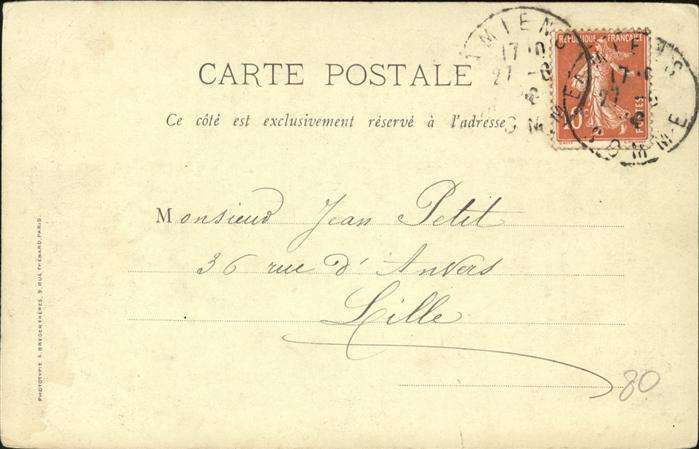 CARTE POSTALE
Ce côté est exclusivement réservé à l'adresse
REPUBLIQUE FRANÇAISE
10
POSTES
AMIENS
SOMME
AMIENS
SOMME
Monsieur Jean Petit
36 rue d'Anvers
Lille
80
PHOTOTYPIE A. BREGER FRÈRES, 9, RUE THÉNARD, PARIS